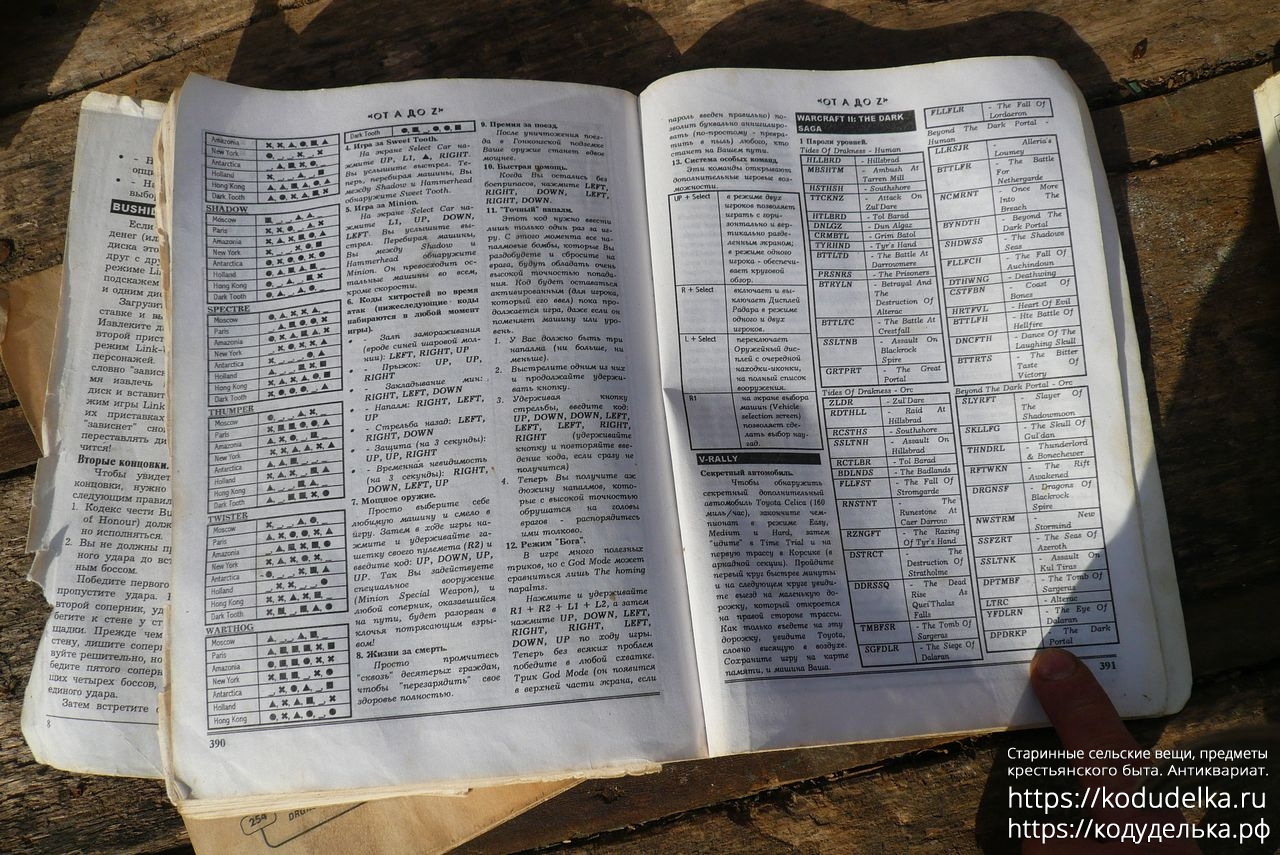 «ОТ А ДО Z»
Amazonia
New York
Antarctica
Holland
Hong Kong
Dark Tooth
SHADOW
Moscow
Paris
Amazonia
New York
Antarctica
Holland
Dark Tooth
SPECTRE
Moscow
Paris
Amazonia
New York
Antarctica
Holland
Hong Kong
Dark Tooth
THUMPER
Moscow
Paris
Amazonia
New York
Antarctica
Holland
Hong Kong
Dark Tooth
TWISTER
Moscow
Paris
Amazonia
New York
Antarctica
Holland
Hong Kong
Dark Tooth
WARTHOG
Moscow
Paris
Amazonia
New York
Antarctica
Holland
Hong Kong
390
Dark Tooth
4. Игра за Sweet Tooth.
На экране Select Car на-
жмите UP, L1, ▲, RIGHT.
Вы услышите выстрел. Те-
перь, перебирая машины, Вы
между Shadow и Hammerhead
обнаружите Sweet Tooth.
5. Игра за Minion.
На экране Select Car на-
жмите L1, UP, DOWN,
LEFT. Вы услышите вы-
стрел. Перебирая машины,
Вы между Shadow и
Hammerhead обнаружите
Minion. Он превосходит ос-
тальные машины во всем,
кроме скорости.
6. Коды хитростей во время
атак (нижеследующие коды
набираются в любой момент
игры).
- Залп замораживания
(вроде синей шаровой мол-
нии): LEFT, RIGHT, UP
- Прыжок: UP, UP,
RIGHT
- Закладывание мин:
RIGHT, LEFT, DOWN
- Напалм: RIGHT, LEFT,
UP
- Стрельба назад: LEFT,
RIGHT, DOWN
- Защита (на 3 секунды):
UP, UP, RIGHT
- Временная невидимость
(на 3 секунды): RIGHT,
DOWN, LEFT, UP
7. Мощное оружие.
Просто выберите себе
любимую машину и смело в
игру. Затем в ходе игры на-
жмите и удерживайте га-
шетку своего пулемета (R2) и
введите код: UP, DOWN, UP,
UP. Так Вы задействуете
специальное вооружение
(Minion Special Weapon), и
любой соперник, оказавшийся
на пути, будет разорван в
клочья потрясающим взры-
вом!
8. Жизни за смерть.
Просто промчитесь
"сквозь" десятерых граждан,
чтобы "перезарядить" свое
здоровье полностью.
9. Премия за поезд.
После уничтожения поез-
да в Гонконгской подземке
Ваше оружие станет вдвое
мощнее.
10. Быстрая помощь.
Когда Вы остались без
боеприпасов, нажмите LEFT,
RIGHT, DOWN, LEFT,
RIGHT, DOWN.
11. "Точный" напалм.
Этот код нужно ввести
лишь только один раз за иг-
ру. С этого момента все на-
палмовые бомбы, которые Вы
раздобудете и сбросите на
врага, будут обладать очень
высокой точностью попада-
ния. Код будет оставаться
активированным (для игрока,
который его ввел) пока про-
должается игра, даже если он
поменяет машину или уро-
вень.
1. У Вас должно быть три
напалма (ни больше, ни
меньше).
2. Выстрелите одним из них
и продолжайте удержи-
вать кнопку.
3. Удерживая кнопку
стрельбы, введите код:
UP, DOWN, DOWN, LEFT,
LEFT, LEFT, RIGHT,
RIGHT (удерживайте
кнопку и повторяйте вве-
дение кода, если сразу не
получится)
4. Теперь Вы получите аж
дюжину напалмов, кото-
рые с высокой точностью
обрушатся на головы
врагов - распорядитесь
ими толково.
12. Режим "Бога".
В игре много полезных
триков, но с God Mode может
сравниться лишь The homing
napalms.
Нажмите и удерживайте
R1 + R2 + L1 + L2, а затем
нажмите UP, DOWN, LEFT,
RIGHT, RIGHT, LEFT,
DOWN, UP по ходу игры.
Теперь без всяких проблем
победите в любой схватке.
Трик God Mode (он появится
в верхней части экрана, если
«ОТ А ДО Z»
пароль введен правильно) по-
зволит буквально аннигилиро-
вать (по-простому - превра-
тить в пыль) любого, кто
станет на Вашем пути.
13. Система особых команд.
Эти команды открывают
дополнительные игровые воз-
можности.
UP + Select
в режиме двух
игроков позволяет
играть с гори-
зонтально и вер-
тикально разде-
ленным экраном;
в режиме одного
игрока - обеспечи-
вает круговой
обзор.
R + Select
включает и вы-
ключает Дисплей
Радара в режиме
одного и двух
игроков.
L + Select
переключает
Оружейный дис-
плей с очередной
находки-иконки,
на полный список
вооружения.
R1
на экране выбора
машин (Vehicle
selection screen)
позволяет сде-
лать выбор нау-
гад.
V-RALLY
Секретный автомобиль.
Чтобы обнаружить
секретный дополнительный
автомобиль Toyota Celica (160
миль/час), закончите чем-
пионат в режиме Easy,
Medium и Hard, затем
"идите" в Time Trial и на
первую трассу в Корсике (в
аркадной секции). Пройдите
первый круг быстрее минуты
и на следующем круге увиди-
те выезд на маленькую до-
рожку, который откроется
на правой стороне трассы.
Как только въедете на эту
дорожку, увидите Toyota,
словно висящую в воздухе.
Сохраните игру на карте
памяти, и машина Ваша.
WARCRAFT II: THE DARK
SAGA
1 Пароли уровней.
Tides Of Drakness - Human
HLLBRD - Hillsbrad
MBSHTM - Ambush At
Tarren Mill
HSTHSH - Southshore
TTCKNZ - Attack On
Zul'Dare
HTLBRD - Tol Barad
DNLGZ - Dun Algaz
CRMBTL - Grim Batol
TYRHND - Tyr's Hand
BTTLTD - The Battle At
Darrowmere
PRSNRS - The Prisoners
BTRYLN - Betrayal And
The
Destruction Of
Alterac
BTTLTC - The Battle At
Crestfall
SSLTNB - Assault On
Blackrock
Spire
GRTPRT - The Great
Portal
Tides Of Drakness - Orc
ZLDR - Zul'Dare
RDTHLL - Raid At
Hillsbrad
RCSTHS - Southshore
SSLTNH - Assault On
Hillsbrad
RCTLBR - Tol Barad
BDLNDS - The Badlands
FLLFST - The Fall Of
Stromgarde
RNSTNT - The
Runestone At
Caer Darrow
RZNGFT - The Razing
Of Tyr's Hand
DSTRCT - The
Destruction Of
Stratholme
DDRSSQ - The Dead
Rise As
Quel'Thalas
Falls
TMBFSR - The Tomb Of
Sargeras
SGFDLR - The Siege Of
Dalaran
FLLFLR - The Fall Of
Lordaeron
Beyond The Dark Portal -
Human
LLRSJR - Alleria's
Lourney
BTTLFR - The Battle
For
Nethergarde
NCMRNT - Once More
Into The
Breach
BYNDTH - Beyond The
Dark Portal
SHDWSS - The Shadows
Seas
FLLFCH - The Fall Of
Auchindoun
DTHWNG - Deathwing
CSTFBN - Coast Of
Bones
HRTFVL - Heart Of Evil
BTTLFH - Hte Battle Of
Hellfire
DNCFTH - Dance Of The
Laughing Skull
BTTRTS - The Bitter
Taste Of
Victory
Beyond The Dark Portal - Orc
SLYRFT - Slayer Of
The
Shadowmoon
SKLLFG - The Skull Of
Gul'dan
THNDRL - Thunderlord
& Bonechever
RFTWKN - The Rift
Awakened
DRGNSF - Dragons Of
Blackrock
Spire
NWSTRM - New
Stormind
SSFZRT - The Seas Of
Azeroth
SSLTNK - Assault On
Kul Tiras
DPTMBF - The Tomb Of
Sargeras
LTRC - Alterac
YFDLRN - The Eye Of
Dalaran
DPDRKP - The Dark
Portal
391
BUSHID
Вторые концовки.
8
254
Старинные сельские вещи, предметы
крестьянского быта. Антиквариат.
https://kodudelka.ru
https://кодуделька.рф